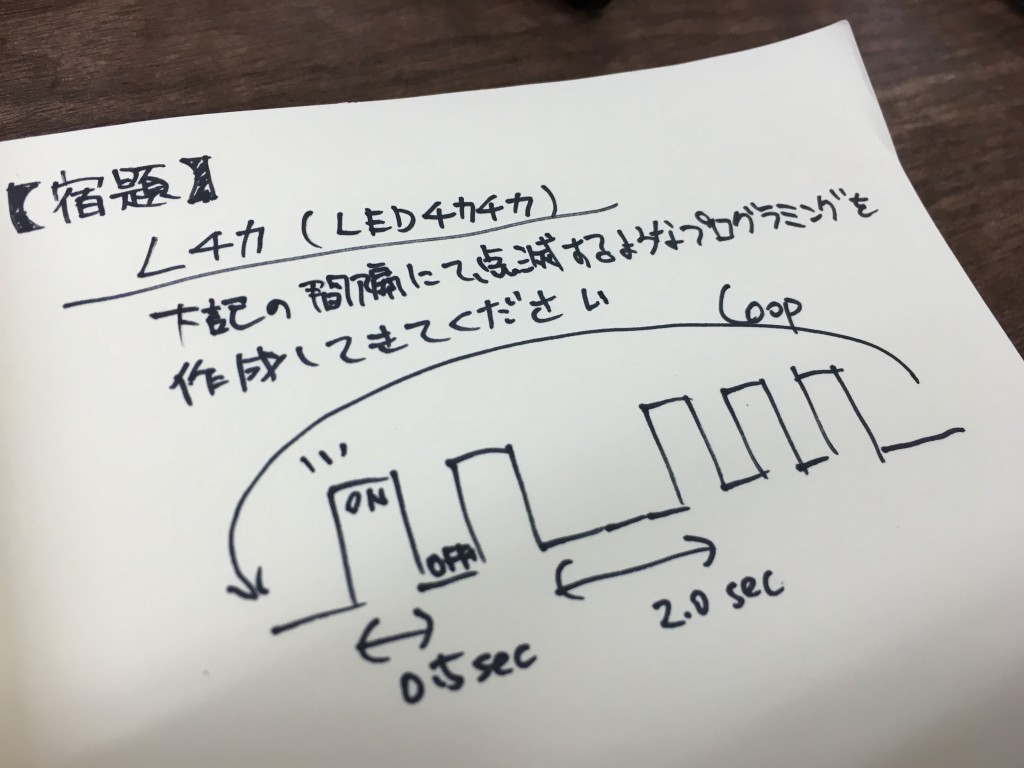 【宿題】
Lチカ (LEDチカチカ)
下記の間隔にて、点滅するようなプログラミングを
作成してきてください
Loop
ON
OFF
0.5sec
2.0 sec